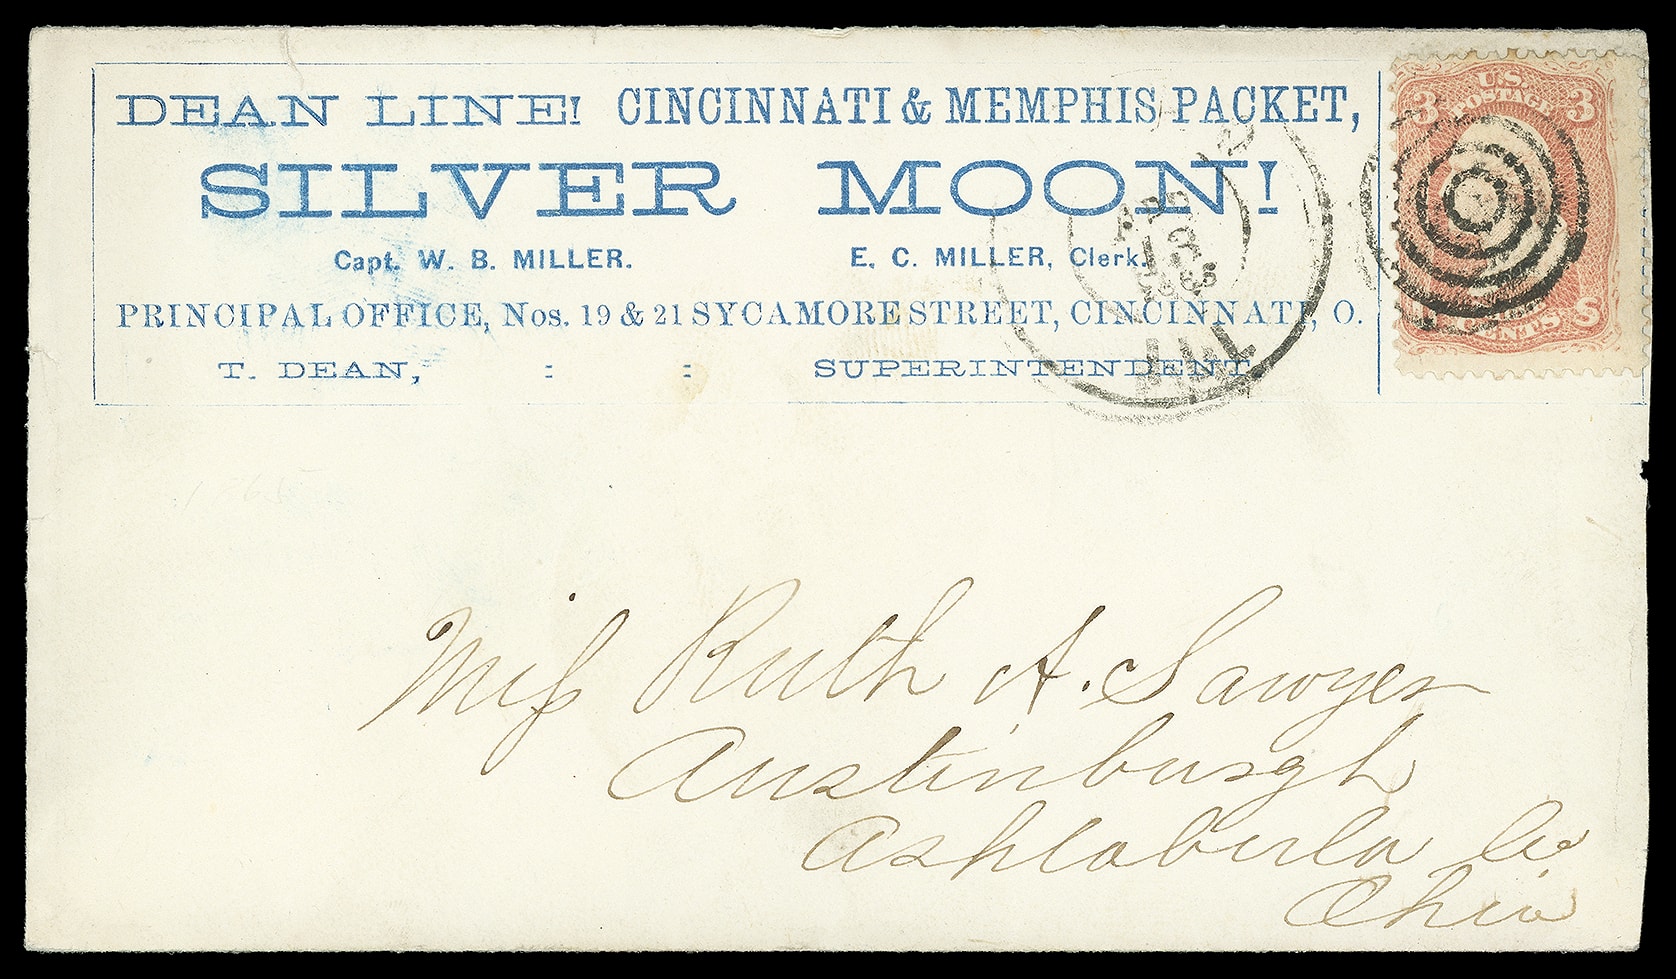 DEAN LINE! CINCINNATI & MEMPHIS PACKET,
SILVER MOON!
Capt. W. B. MILLER. E. C. MILLER, Clerk.
PRINCIPAL OFFICE, Nos. 19 & 21 SYCAMORE STREET, CINCINNATI, O.
T. DEAN, : : SUPERINTENDENT.
U S
POSTAGE
3 3
CENTS
U S
APR
13
1865
ILL
1865
Miſs Ruth A. Sawyer
Austinburgh
Ashtabula Co
Ohio